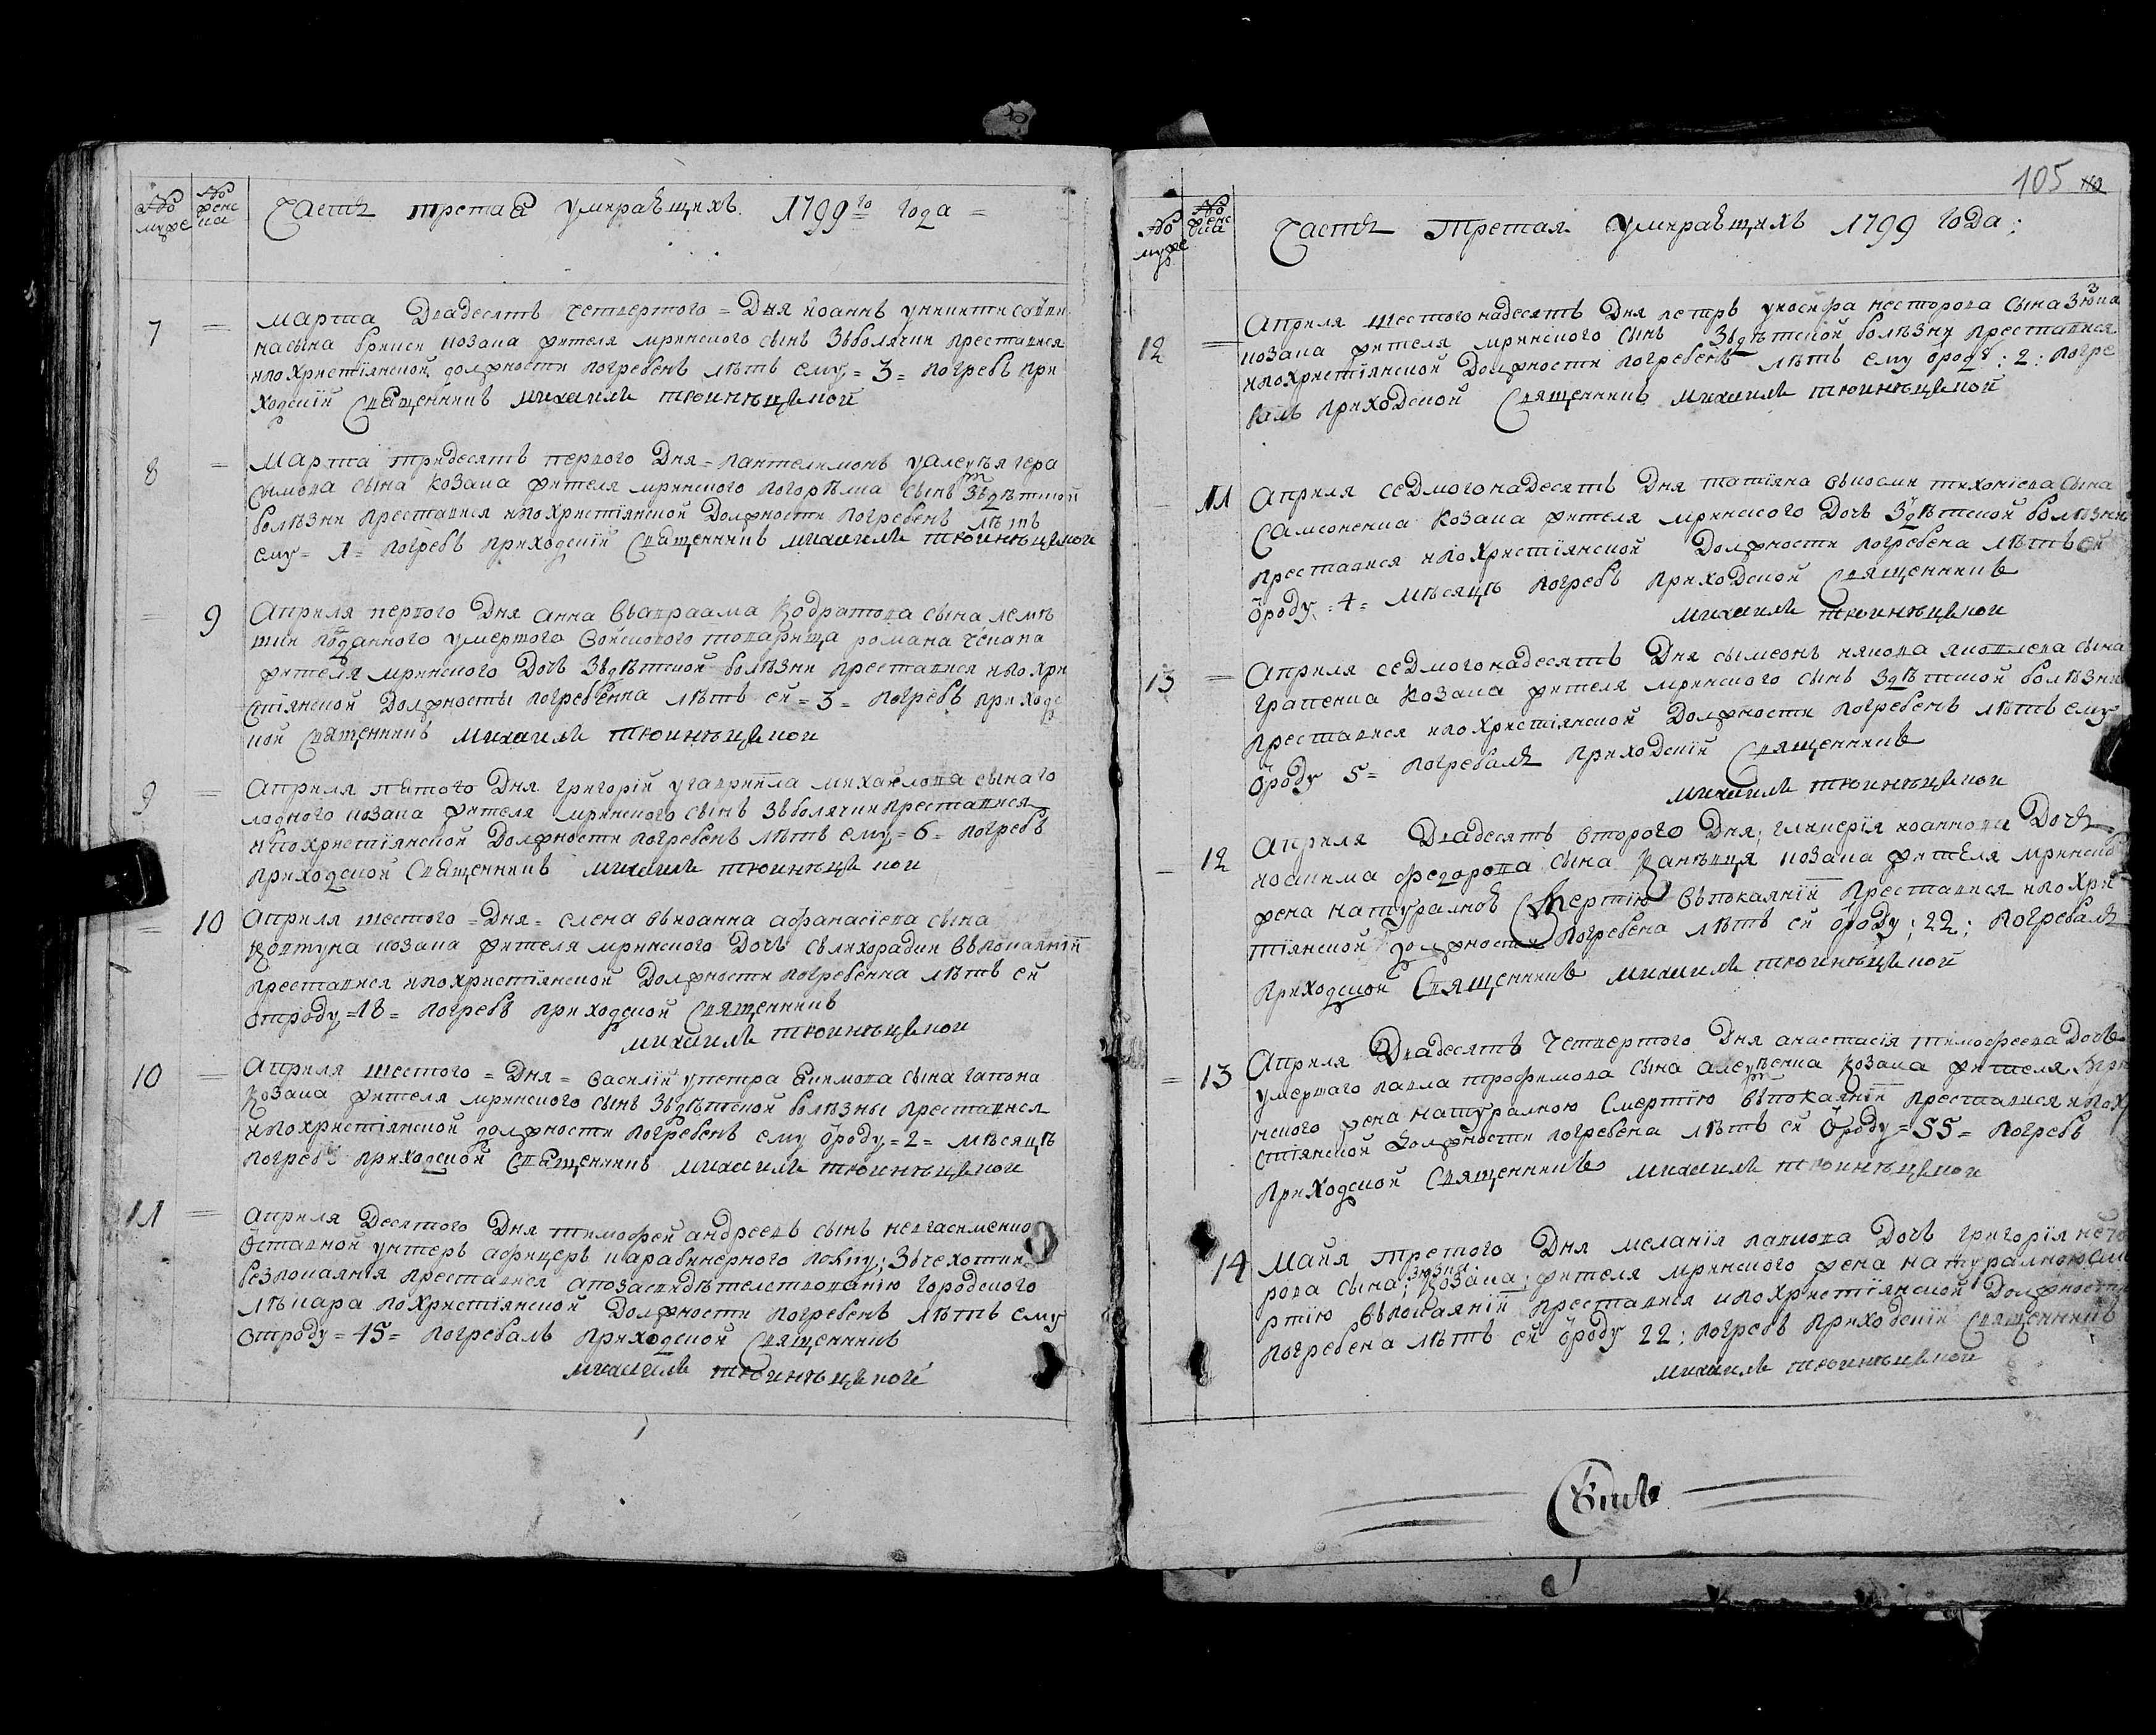 № муже
№ женска
Часть третая умираѣщихъ 1799го года =
7 = Марта двадесять четвертого = дня иоаннъ
насына козака жителя мринского сынъ зъболячки преставися
ипохристіянской должности погребенъ лѣтъ ему = 3 = погребъ при
ходскій священникъ михаилъ
8 = Марта тридесять первого дня = пантелимонъ уалеѯѣя гера
симова сына козака жителя мринского погорѣлка сынъ здѣтской
болѣзни преставися ипохристіянской должности погребенъ лѣтъ
ему = 1 = погребъ приходскій священникъ михаилъ
= 9 Априля первого дня анна въавраама кодратова сына
подданного умертого войскового товарища романа
жителя мринского дочь зъдѣтской болѣзни преставися ипохри
стіянской должносты погребенна лѣтъ ей = 3 = погребъ приходс
кой священникъ михаилъ
9 = Априля пятого дня григорій угавриила михайлова сына го
лодного козака жителя мринского сынъ зъболячки преставися
ипохристіянской должности погребенъ лѣтъ ему = 6 = погребъ
приходской священникъ михаилъ
= 10 Априля шестого = дня = елена въиоанна афанасіева сына
ковтуна козака жителя мринского дочь сълихорадки въпокаяніи
преставися ипохристіянской должности погребенна лѣтъ ей
отроду = 18 = погребъ приходской священникъ
михаилъ
10 = Априля шестого = дня = василій упетра екимова сына гапона
козака жителя мринского сынъ зъдѣтской болѣзны преставися
ипохристіянской должности погребенъ ему ѿроду = 2 = мѣсяцѣ
погребъ приходской священникъ михаилъ
11 = Априля десятого дня тимофей андреевъ сынъ
оставной унтеръ афицеръ карабинерного полку; зъчехотки
безпокаянія преставися апозасвидѣтелствованію городского
лѣкара похристіянской должности погребенъ лѣтъ ему
отроду = 45 = погребалъ приходской священникъ
михаилъ
105
№ муже
№ женска
Часть третая умираѣщихъ 1799 года;
12 = Априля шестогонадесять дня петръ уиосифа несторова сына
козака жителя мринского сынъ зъдѣтской болѣзни преставися
ипохристіянской должности погребенъ лѣтъ ему ѿроду : 2 : погре
балъ приходской священникъ михаилъ
= 11 Априля седмогонадесять дня татіяна въкосми тихоніева сына
самсоненка козака жителя мринского дочь здѣтской болѣзни
преставися ипохристіянской должности погребена лѣтъ ей
ѿроду = 4 = мѣсяцѣ погребъ приходской священникъ
михаилъ
13 = Априля седмогонадесять дня сымеонъ уякова яковлева сына
граченка козака жителя мринского сынъ здѣтской болѣзни
преставися ипохристіянской должности погребенъ лѣтъ ему
ѿроду 5 = погребалъ приходскій священникъ
михаилъ
= 12 Априля двадесять второго дня; гликерія иоаннова дочь
иоакима федорова сына козака жителя мринско
жена натуралною смертію въпокаяніи преставися ипохри
тіянской должности погребена лѣтъ ей ѿроду ; 22 ; погребалъ
приходской священникъ михаилъ
= 13 Априля двадесять четвертого дня анастасія тимофеева дочь
умершаго павла трофимова сына алеѯѣенка козака жителя мри
нского жена натуралною смертію въпокаяніи преставися ипохр
стіянской должности погребена лѣтъ ей ѿроду = 55 = погребъ
приходской священникъ михаилъ
14 Майя третого дня меланія павлова дочь григорія несто
рова сына; козака; жителя мринского жена натуралною сме
ртію въпокаяніи преставися ипохристіянской должности
погребена лѣтъ ей ѿроду 22 ; погребъ приходскій священникъ
михаилъ